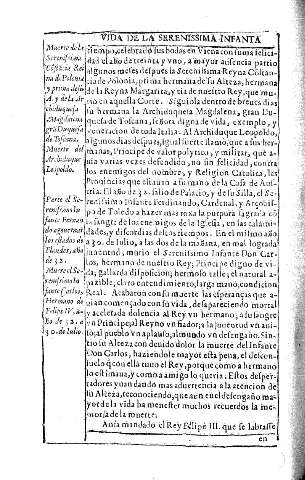 VIDA DE LA SERENISSIMA INFANTA
Muerte de la
Serenissima
Reina
de Polonia
y prima de su
A. y de la Archiduquesa
Magdalena
gran Duquesa
de Toscana.
Muerte del
Archiduque
Leopoldo.
Parte el Serenissimo
Infante Fernando
a governar
los estados de
Flandes, año
de 32.
Muere el Serenissimo
Infante Carlos,
Hermano de
Felipe IV. año
de 32. a
30. de Iulio.
tiempo, celebrò sus bodas en Viena con suma felicidad
el año de treinta y uno, a mayor ausencia partio
algunos meses despues la Serenissima Reyna
de Polonia, prima hermana de su Alteza, hermana
de la Reyna Margarita, y tia de nuestro Rey, que murio
en aquella Corte. Siguiola dentro de breues dias
su hermana la Archiduquesa Magdalena, gran Duquesa
de Toscana, señora digna de vida, exemplo, y
veneracion de toda Italia. Al Archiduque Leopoldo,
algunos dias despues, igual suerte llamò, que a sus hermanas,
Principe de valor polytico, y militar, que auia
varias vezes defendido, no sin felicidad, contra
los enemigos del nombre, y Religion Catolica, las
Prouincias que estauan a su mano de la Casa de Austria.
El año de 32. salio de Palacio, y de su silla, el Serenissimo
Infante Ferdinando, Cardenal, y Arçobispo
de Toledo a hazer mas roxa la purpura sagrada cõ
la sangre de los enemigos de la Iglesia, en las calamidades,
y discordias de los tiempos. En el mismo año
a 30. de Iulio, a las dos de la mañana, en mal lograda
juuentud, murio el Serenissimo Infante Don Carlos,
hermano de nuestro Rey; Principe digno de vida,
gallarda disposicion; hermoso talle; el natural apazible,
claro entendimiento, largo mano; condicion
Real. Acabaron con su muerte las esperanças que auian
començado con su vida, desapareciendo mortal
y acelerada dolencia al Rey un hermano; a su sangre
un Principe; al Reyno un fiador; a la juuentud un animo;
al pueblo un aplauso; al mundo un desengaño. Sintio
su Alteza con deuido dolor la muerte del Infante
Don Carlos, haziendole mayor esta pena, el desconsuelo
q̃ con ella tuuo el Rey, porque como a hermano
lo estimaua, y como a amigo lo queria. Estos despertadores
yuan dando mas aduertencia a la atencion de
su Alteza, reconociendo, que aun en el desengaño mayor
de la vida ha menester muchos recuerdos la memoria
de la muerte.
Auia mandado el Rey Felipe III. que se labrasse
en